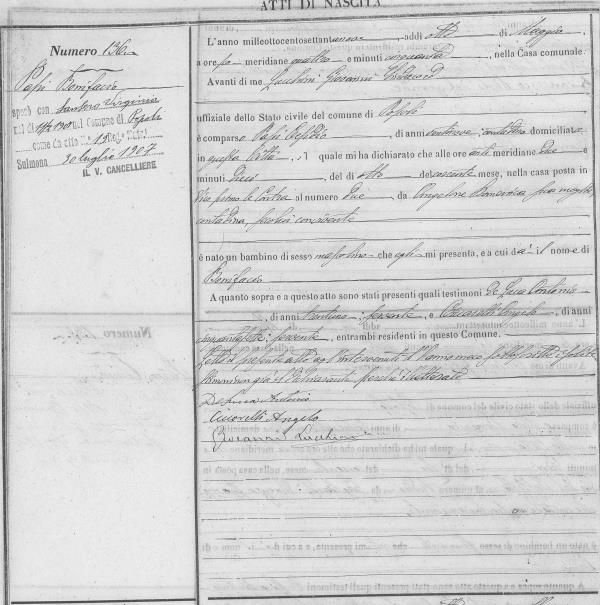 ATTI DI NASCITA
Numero 136
Papi Bonifacio
sposò con Santoro Virginia
nel dì nel Comune di Popoli
come da atto No. 15
Sulmona 30 luglio 1907
IL V. CANCELLIERE
L'anno milleottocentosettantanove, addì otto di Maggio,
a ore po meridiane quattro e minuti cinquanta, nella Casa comunale.
Avanti di me Giovanni Sindaco
uffiziale dello Stato civile del comune di Popoli
è comparso Papi Egidio, di anni contadino domiciliato
in questa Città, il quale mi ha dichiarato che alle ore anti meridiane due e
minuti dieci, del dì otto del corrente mese, nella casa posta in
Vico al numero due, da Angela sua moglie,
contadina, seco lui convivente
è nato un bambino di sesso mascolino che egli mi presenta, e a cui dà il nome di
Bonifacio
A quanto sopra e a questo atto sono stati presenti quali testimoni De Luca Antonio
, di anni trentuno, serviente, e Ciccarelli Angelo, di anni
cinquantasette, serviente, entrambi residenti in questo Comune.
Letto il presente atto agli intervenuti l'hanno meco sottoscritto
il dichiarante perché illetterato
De Luca Antonio
Ciccorelli Angelo
Giovanni